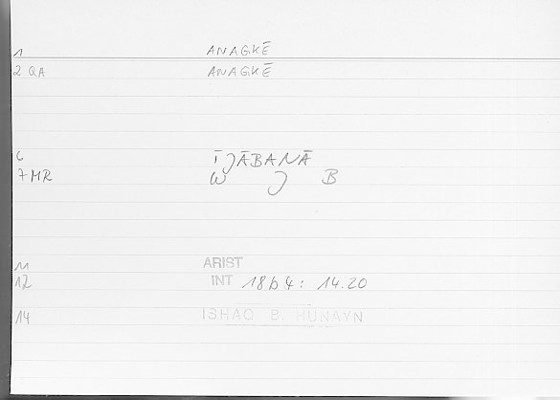 1 ANAGKĒ
2 QA ANAGKĒ
6 ĪJĀBANĀ
7 MR W J B
11 ARIST
12 INT 18b4: 14.20
14 ISḤĀQ B. ḤUNAYN